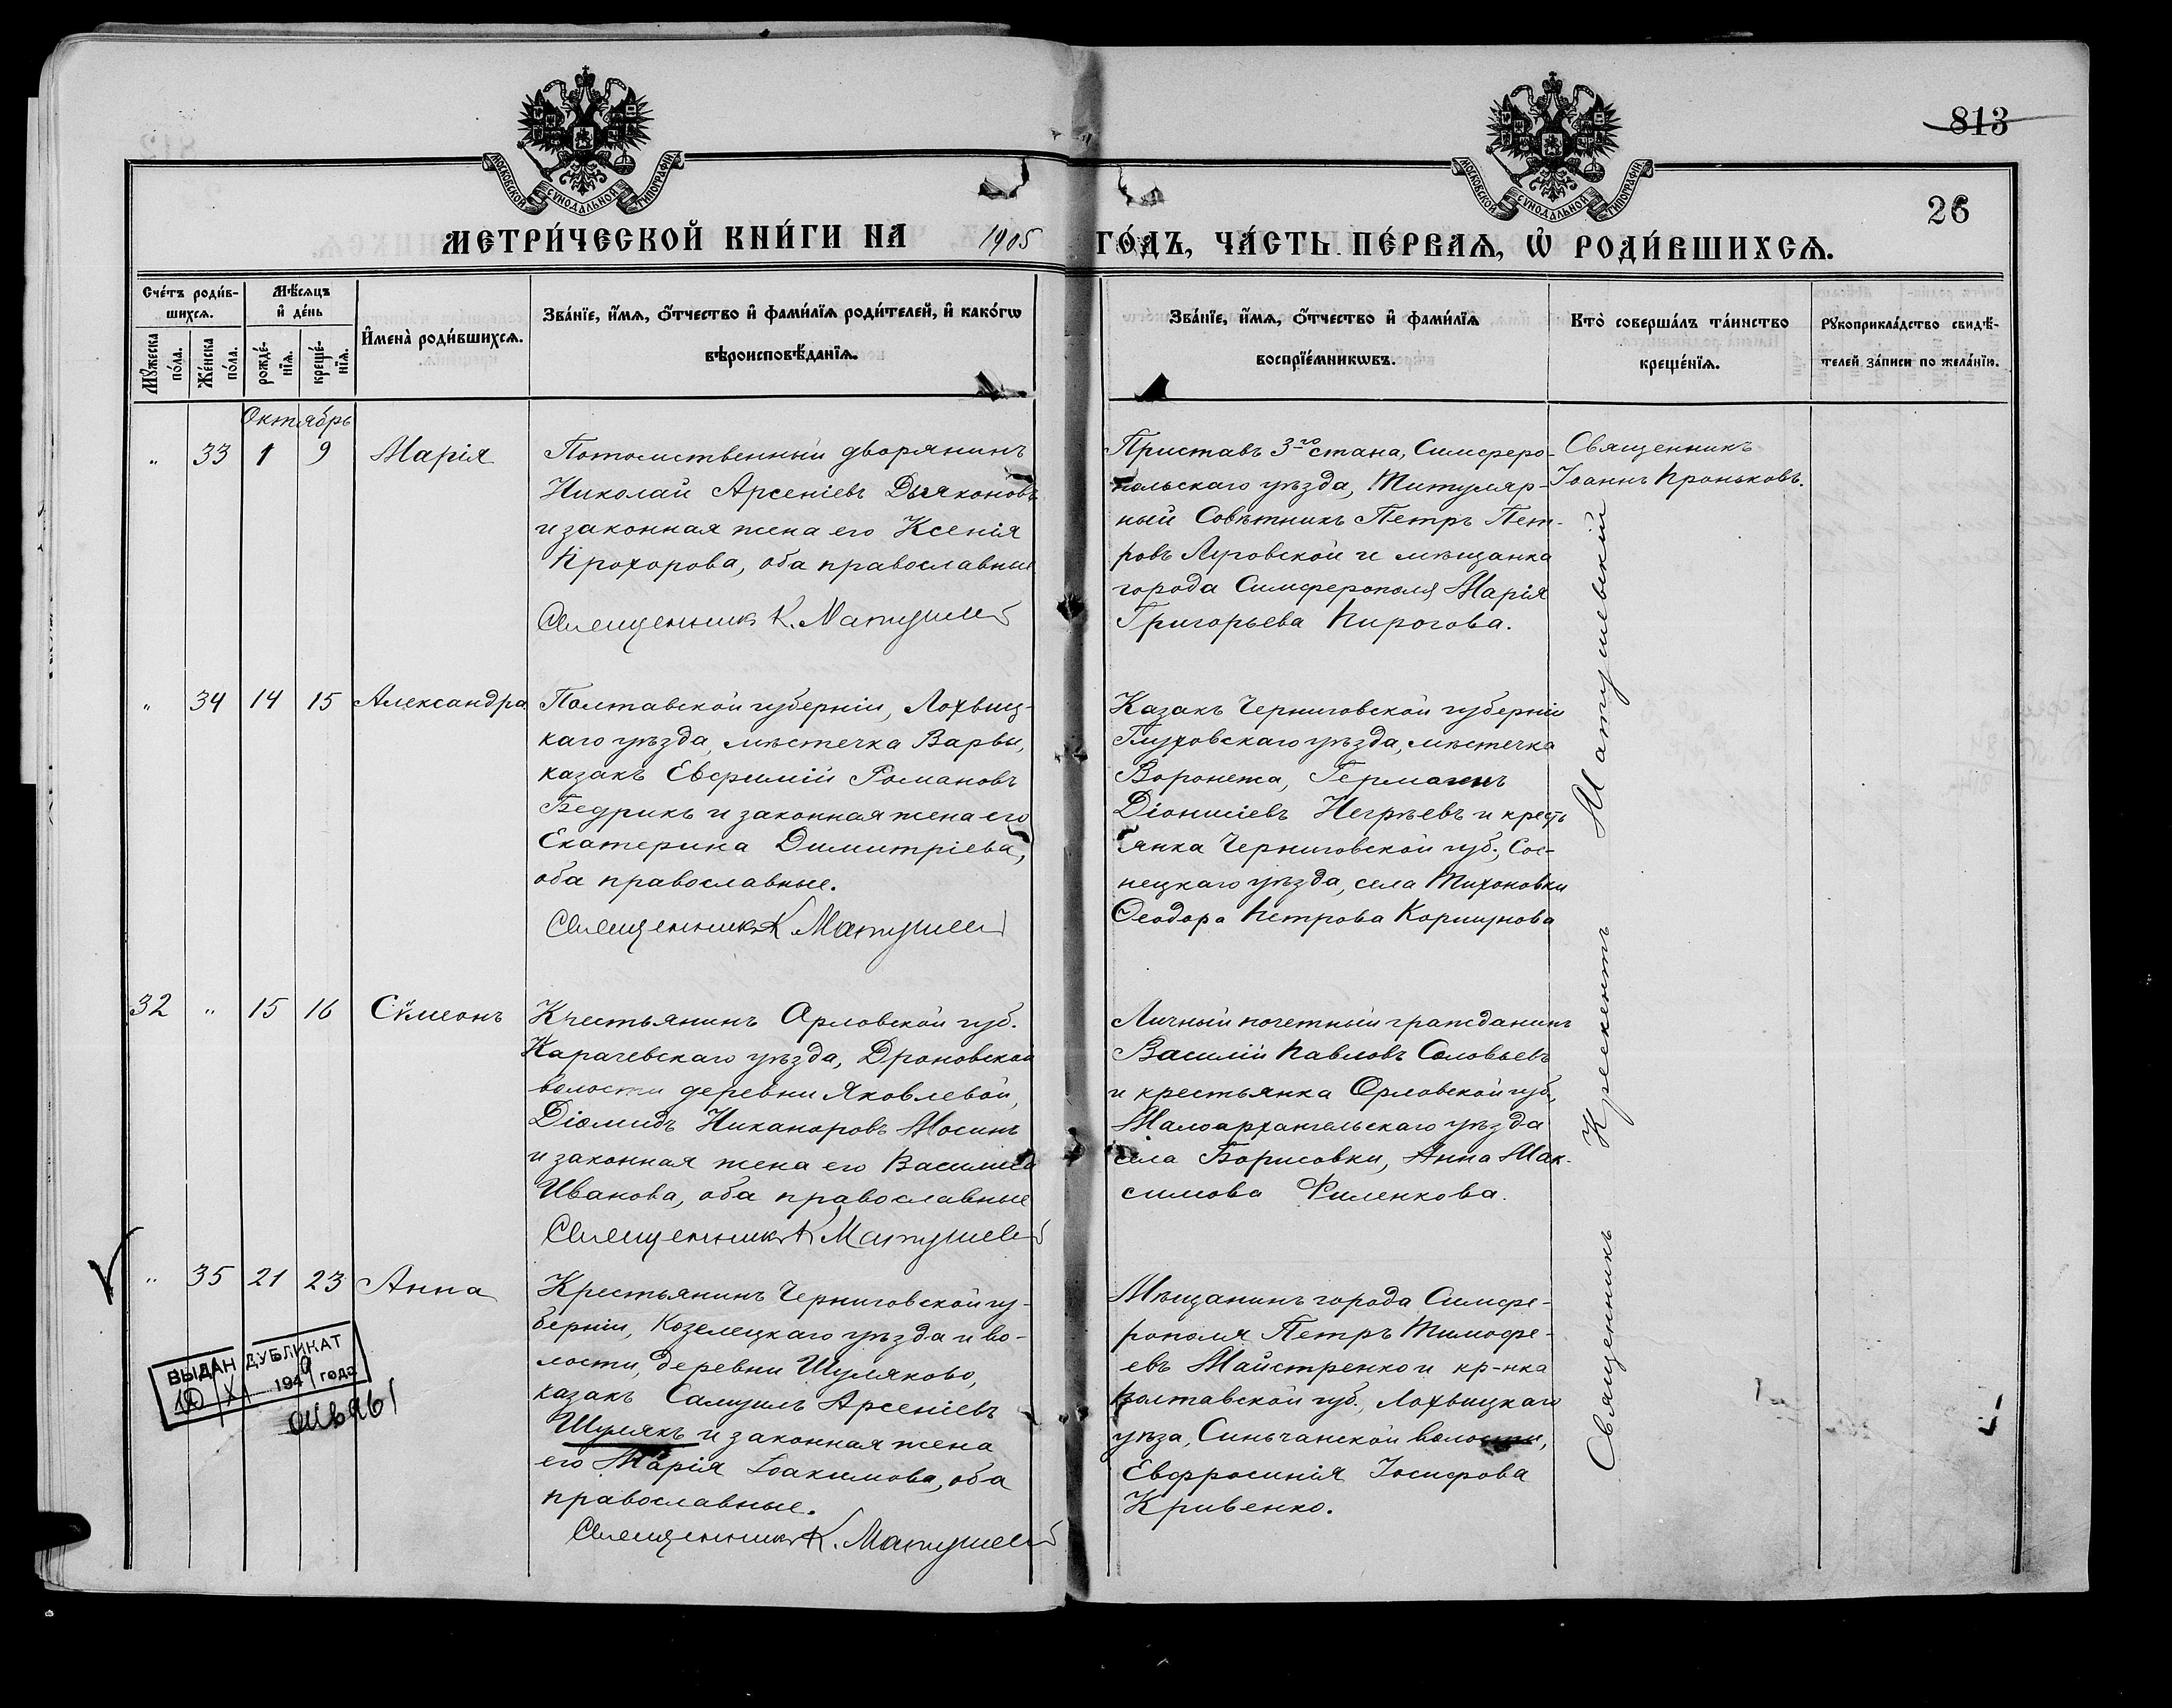 813
26
МОСКОВСКОЙ СѴНОДАЛЬНОЙ ТИПОГРАФІИ
МОСКОВСКОЙ СѴНОДАЛЬНОЙ ТИПОГРАФІИ
МЕТРИ́ЧЕСКОЙ КНИ́ГИ НА 1905 ГО́ДЪ, ЧА́СТЬ ПЕ́РВАѦ, Ѡ҆ РОДИ́ВШИХСѦ.
Сче́тъ роди́в-
шихсѧ.
Мꙋ́жеска по́ла.
Же́нска по́ла.
Мѣ́сѧцъ
и҆ де́нь
рожде́-
нїѧ.
креще́-
нїѧ.
И҆мена̀ роди́вшихсѧ.
Зва́нїе, и҆́мѧ, ѻ҆́тчество и҆ фами́лїѧ роди́телей, и҆ како́гѡ
вѣроисповѣ́данїѧ.
Зва́нїе, и҆́мѧ, ѻ҆́тчество и҆ фами́лїѧ
воспрїе́мникѡвъ.
Кто̀ соверша́лъ та́инство
креще́нїѧ.
Рꙋкоприкла́дство свидѣ́-
телей за́писи по жела́нїю.
Октябрь
" 33 1 9 Марія
Потомственный дворянинъ
Николай Арсеніевъ Дьяконовъ
и законная жена его Ксенія
Прохорова, оба православные
Священникъ К. Матушев
Приставъ 3го стана, Симферо-
польскаго уѣзда, Титуляр-
ный Совѣтникъ Петръ Пет-
ровъ Луговской и мѣщанка
города Симферополя Марія
Григорьева Пирогова.
Священникъ
Іоаннъ Проньковъ.
" 34 14 15 Александра
Полтавской губерніи, Лохвиц-
каго уѣзда, мѣстечка Варвы,
казакъ Евфимій Романовъ
Бедрикъ и законная жена его
Екатерина Димитріева,
оба православные.
Священникъ К. Матушев
Казакъ Черниговской губерніи
Глуховскаго уѣзда, мѣстечка
Воронежа, Германъ
Діонисіевъ Негрѣевъ и кресть
янка Черниговской губ., Сос-
ницкаго уѣзда, села Тихоновки
Ѳеодора Петрова Коршунова
32 " 15 16 Сѷмеонъ
Крестьянинъ Орловской губ.
Карачевскаго уѣзда, Дроновской
волости деревни Яковлевой,
Діомидъ Никаноровъ Мосинъ
и законная жена его Василиса
Иванова, оба православные
Священникъ К Матушев
Личный почетный гражданинъ
Василій Павловъ Соловьевъ
и крестьянка Орловской губ.,
Малоархангельскаго уѣзда
села Борисовки, Анна Мак-
симова Филенкова.
" 35 21 23 Анна
Крестьянинъ Черниговской гу-
берніи, Козелецкаго уѣзда и во-
лости, деревни Шуляково,
казакъ Самуилъ Арсеніевъ
Шулякъ и законная жена
его Марія Іоакимова, оба
православные.
Священникъ К. Матушев
Мѣщанинъ города Симфе-
рополя Петръ Тимофе-
евъ Майстренко и кр-нка
Полтавской губ., Лохвицкаго
уѣза, Синьчанской волости,
Евфросинія Іосифова
Кривенко.
Священникъ Крескентъ Матушевскій
ВЫДАН ДУБЛИКАТ
10/XI 1949 года